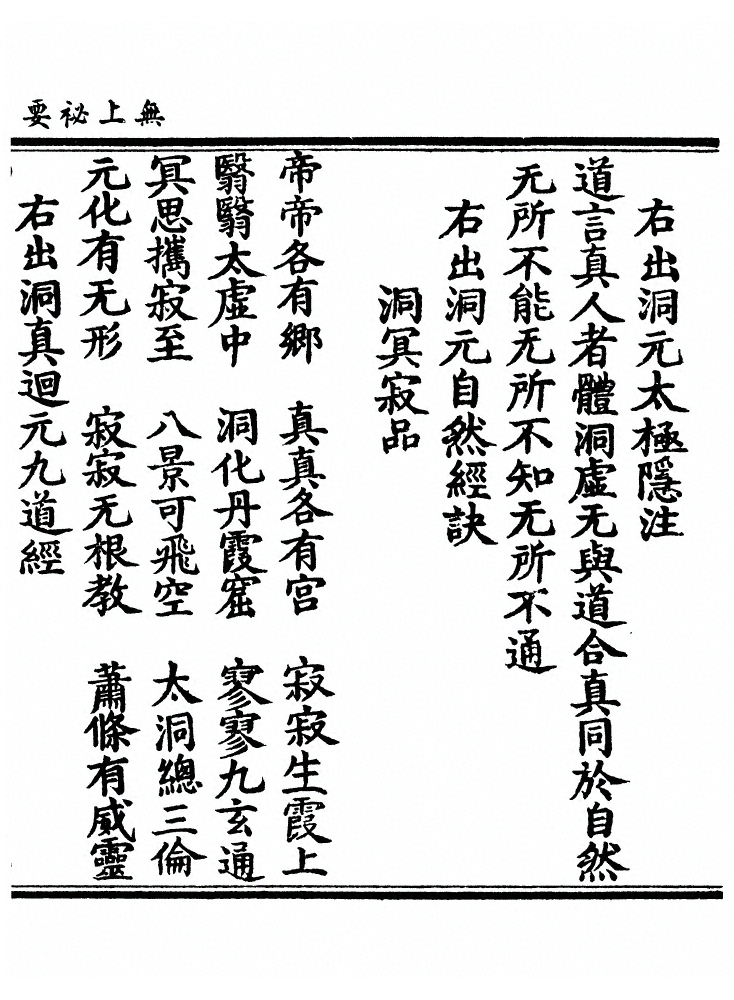 無上祕要
右出洞元太極隱注
道言真人者體洞虛无與道合真同於自然
无所不能无所不知无所不通
右出洞元自然經訣
洞冥寂品
帝帝各有鄉　真真各有宮　寂寂生霞上
翳翳太虛中　洞化丹霞窟　寥寥九玄通
冥思攜寂至　八景可飛空　太洞總三倫
元化有无形　寂寂无根教　蕭條有威靈
右出洞真迴元九道經